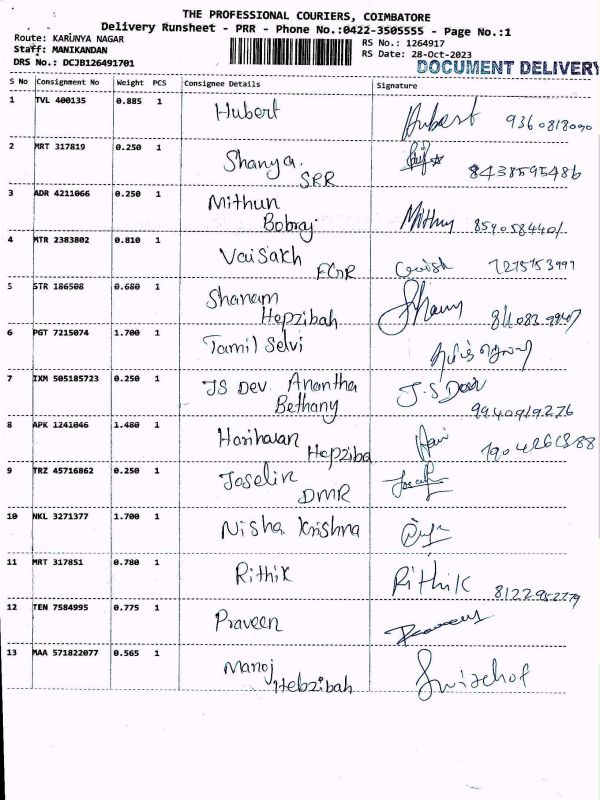 THE PROFESSIONAL COURIERS, COIMBATORE
Delivery Runsheet - PRR - Phone No.:0422-3505555 - Page No.:1
Route: KARUNYA NAGAR
RS No.: 1264917
Staff: MANIKANDAN
RS Date: 28-Oct-2023
DRS No.: DCJB126491701
DOCUMENT DELIVERY
S No Consignment No Weight PCS Consignee Details Signature
1 TVL 400135 0.885 1 Hubert Hubert 9360818090
2 MRT 317819 0.250 1 Shanya. 8438595486
SRR
3 ADR 4211066 0.250 1 Mithun Mithun
Bobraj
4 MTR 2383802 0.810 1 Vaisakh
5 STR 186508 0.680 1 Shanam
Hepzibah
6 PGT 7215074 1.700 1 Tamil Selvi
7 IXM 505185723 0.250 1 JS Dev Anantha J.S Dev
Bethany 9940919276
8 APK 1241046 1.480 1 Hariharan Hari
Hepziba
9 TRZ 45716862 0.250 1 Joselin
DMR
10 NKL 3271377 1.700 1 Nisha Krishna
11 MRT 317851 0.780 1 Rithik Rithik
12 TEN 7584995 0.775 1 Praveen
13 MAA 571822077 0.565 1 Manoj
Hebzibah